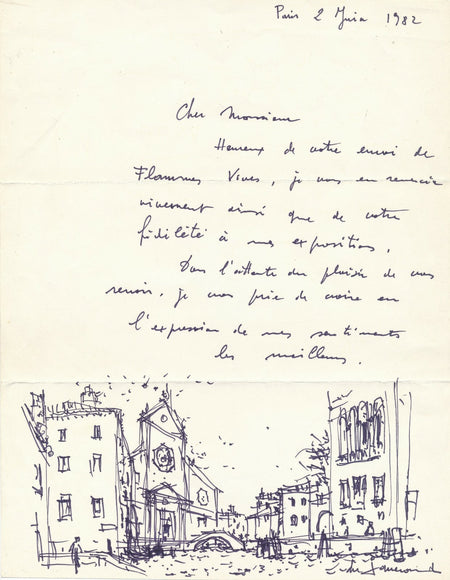 Paris 2 Juin 1982
Cher Monsieur
Heureux de votre envoi de
Flammes Vives, je vous en remercie
vivement ainsi que de votre
fidélité à mes expositions.
Dans l'attente du plaisir de vous
revoir, je vous prie de croire en
l'expression de mes sentiments
les meilleurs.